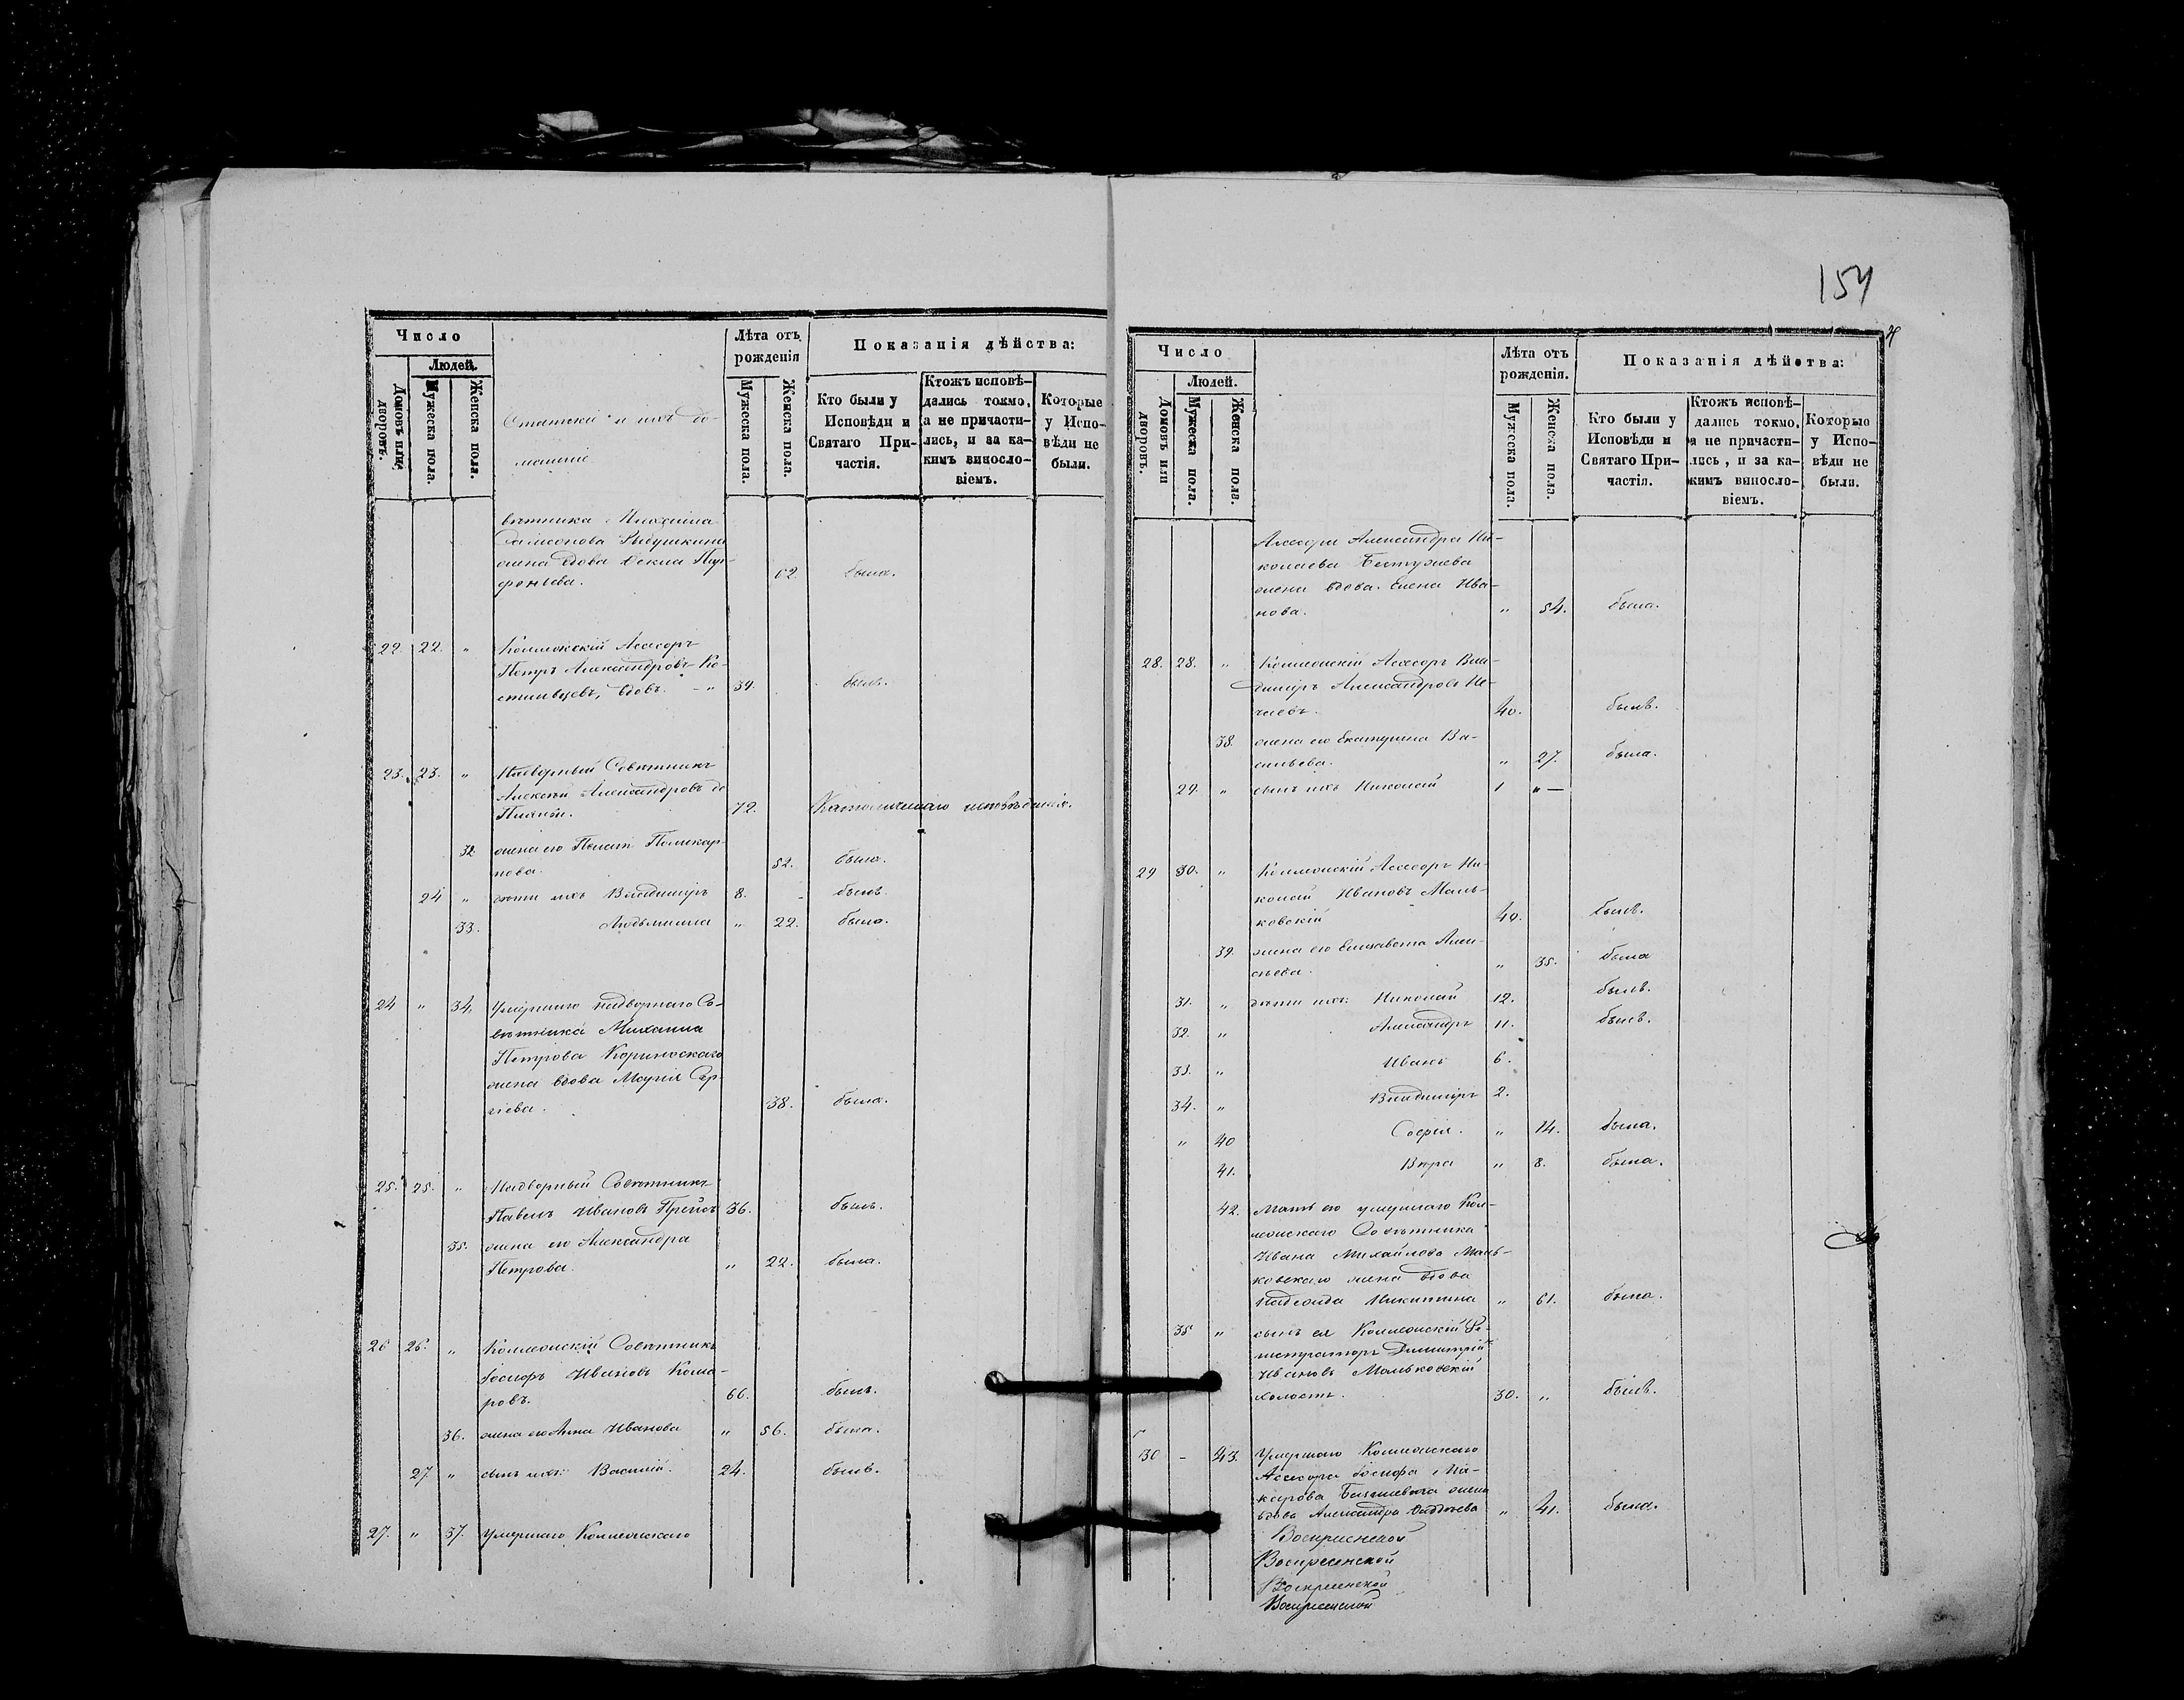 154
Число
Людей.
Домовъ или дворовъ.
Мужеска пола.
Женска пола.
Статскіе и ихъ до-
машніе
Лѣта отъ рожденія
Мужеска пола.
Женска пола.
Показанія дѣйства:
Кто были у Исповѣди и Святаго Причастія.
Ктожъ исповѣ-
дались токмо,
а не причасти-
лись, и за ка-
кимъ винос­ло-
віемъ.
Которые
у Испо-
вѣди не
были.
вѣтника Михаила
Самсонова
жена вдова Пар-
феньева. 62. была.
22. 22. " Коллежскій Асессоръ
Петръ Александровъ Ко-
стливцевъ, вдовъ. - " 34. былъ.
23. 23. " Надворный Совѣтникъ
Алексѣй Александровъ де
72. Католическаго исповѣданія.
32 жена его Поликар-
пова. 52. была.
24 " дѣти ихъ Владиміръ 8. - былъ.
33. Людьмилла " 22. была.
24 " 34. Умершаго надворнаго Со-
вѣтника Михаила
Петрова
жена вдова Марія Сер-
гіева. 38. была.
25. 25. " Надворный Совѣтникъ
Павелъ Ивановъ Прейсъ 36. былъ.
35. жена его Александра
Петрова. " 22. была.
26 26. " Коллежскій Совѣтникъ
Іосифъ Ивановъ Кома-
ровъ. 66. былъ.
36. жена его Анна Иванова " 56. была.
27 " сынъ ихъ: Василій. 24. былъ.
27. " 37. Умершаго Коллежскаго
Число
Людей.
Домовъ или дворовъ.
Мужеска пола.
Женска пола.
Лѣта отъ рожденія.
Мужеска пола.
Женска пола.
Показанія дѣйства:
Кто были у
Исповѣди и
Святаго При-
частія.
Ктожъ исповѣ-
дались токмо,
а не причасти-
лись, и за ка-
кимъ винос­ло-
віемъ.
Которые
у Испо-
вѣди не
были.
Асессора Александра Ни-
колаева Бестужева
жена вдова Елена Ива-
нова. " 54. была.
28. 28. " Коллежскій Асессоръ Вла-
диміръ Александровъ Не-
чаевъ. 40. былъ.
38. жена его Екатерина Ва-
сильева. " 27. была.
29. " сынъ ихъ Николай 1 " —
29 30. " Коллежскій Асессоръ Ни-
колай Ивановъ Маль-
ковскій 40. былъ.
39. жена его Елизавета Але-
ксѣева. " 35. была
31. " дѣти ихъ: Николай 12. былъ.
32. " Александръ 11. былъ.
33. " Иванъ 6.
34. " Владиміръ 2.
" 40 Софія. " 14. была.
41. Вѣра " 8. была.
42. Мать его умершаго Кол-
лежскаго Совѣтника
Ивана Михайлова Маль-
ковскаго жена вдова
Надежда Никитина " 61. была.
35 " сынъ ея Коллежскій Ре-
гистраторъ Димитрій
Ивановъ Мальковскій
холостъ. 30. " былъ.
30 - 43. Умершаго Коллежскаго
Асессора Іосифа Ма-
карова жена
вдова Александра " 41. была.
Воскресенской
Воскресенской
Воскресенской
Воскресенской